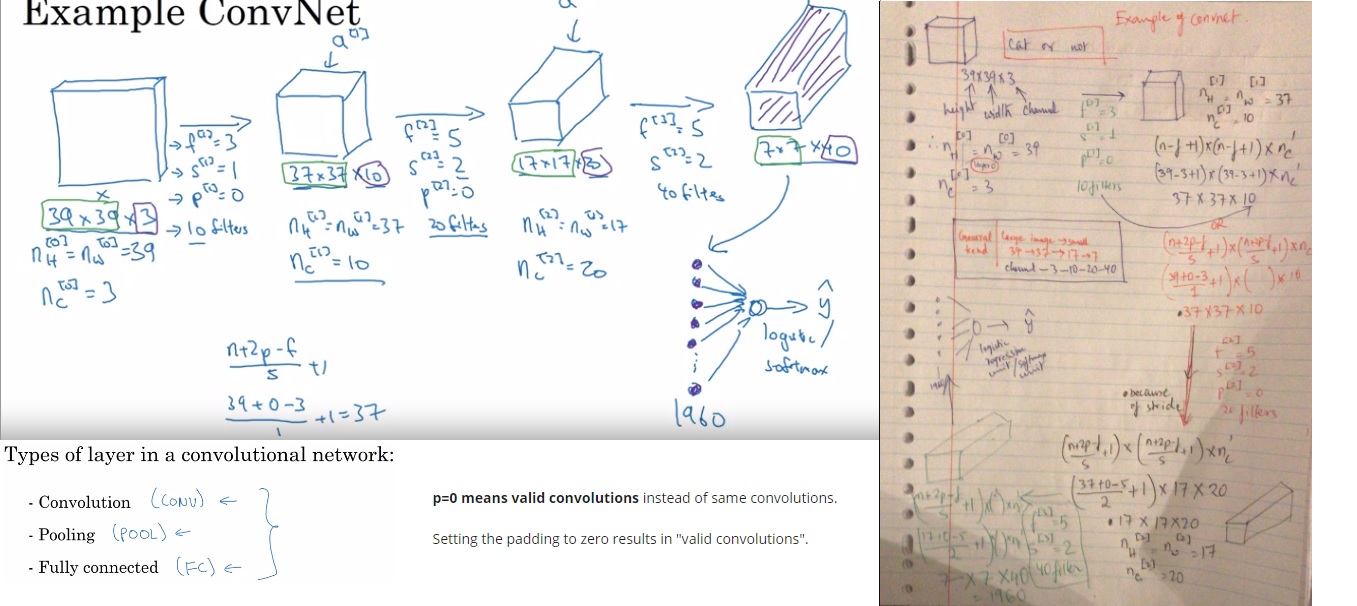 Example ConvNet
a[1]
39 x 39 x 3
nH[0] = nW[0] = 39
nC[0] = 3
→ f[1] = 3
→ s[1] = 1
→ p[1] = 0
→ 10 filters
37 x 37 x 10
nH[1] = nW[1] = 37
nC[1] = 10
f[2] = 5
s[2] = 2
p[2] = 0
20 filters
17 x 17 x 20
nH[2] = nW[2] = 17
nC[2] = 20
f[3] = 5
s[3] = 2
40 filters
7 x 7 x 40
ŷ
logistic /
softmax
1960
n+2p-f
s
+1
39 + 0 - 3
1
+1 = 37
Types of layer in a convolutional network:
- Convolution (CONV) ←
- Pooling (POOL) ←
- Fully connected (FC) ←
p=0 means valid convolutions instead of same convolutions.
Setting the padding to zero results in "valid convolutions".
Example of convnet.
cat or not
39x39x3
height width channel
nH[0] = nW[0] = 39
nC[0] = 3
f[1] = 3
s[1] = 1
p[1] = 0
10 filters
nH[1] = nW[1] = 37
nC[1] = 10
(n-f+1)x(n-f+1)xnc'
(39-3+1)x(39-3+1)xnc'
37 x 37 x 10
OR
(n+2p-f/s+1)x(n+2p-f/s+1)xnc
(39+0-3/1+1)x( )x10
37x37x10
General trend
Large image → small
39→37→17→7
channel - 3-10-20-40
ŷ
logistic
regression
unit/softmax
unit
f[2] = 5
s[2] = 2
p[2] = 0
20 filters
because
of stride
(n+2p-f/s+1)x(n+2p-f/s+1)xnc'
(37+0-5/2+1)x17x20
17x17x20
nH[2] = nW[2] = 17
nC[2] = 20
(n+2p-f/s+1)x( )xnc
(17+0-5/2+1)( )
f[3] = 5
s[3] = 2
40 filter
7x7x40
= 1960